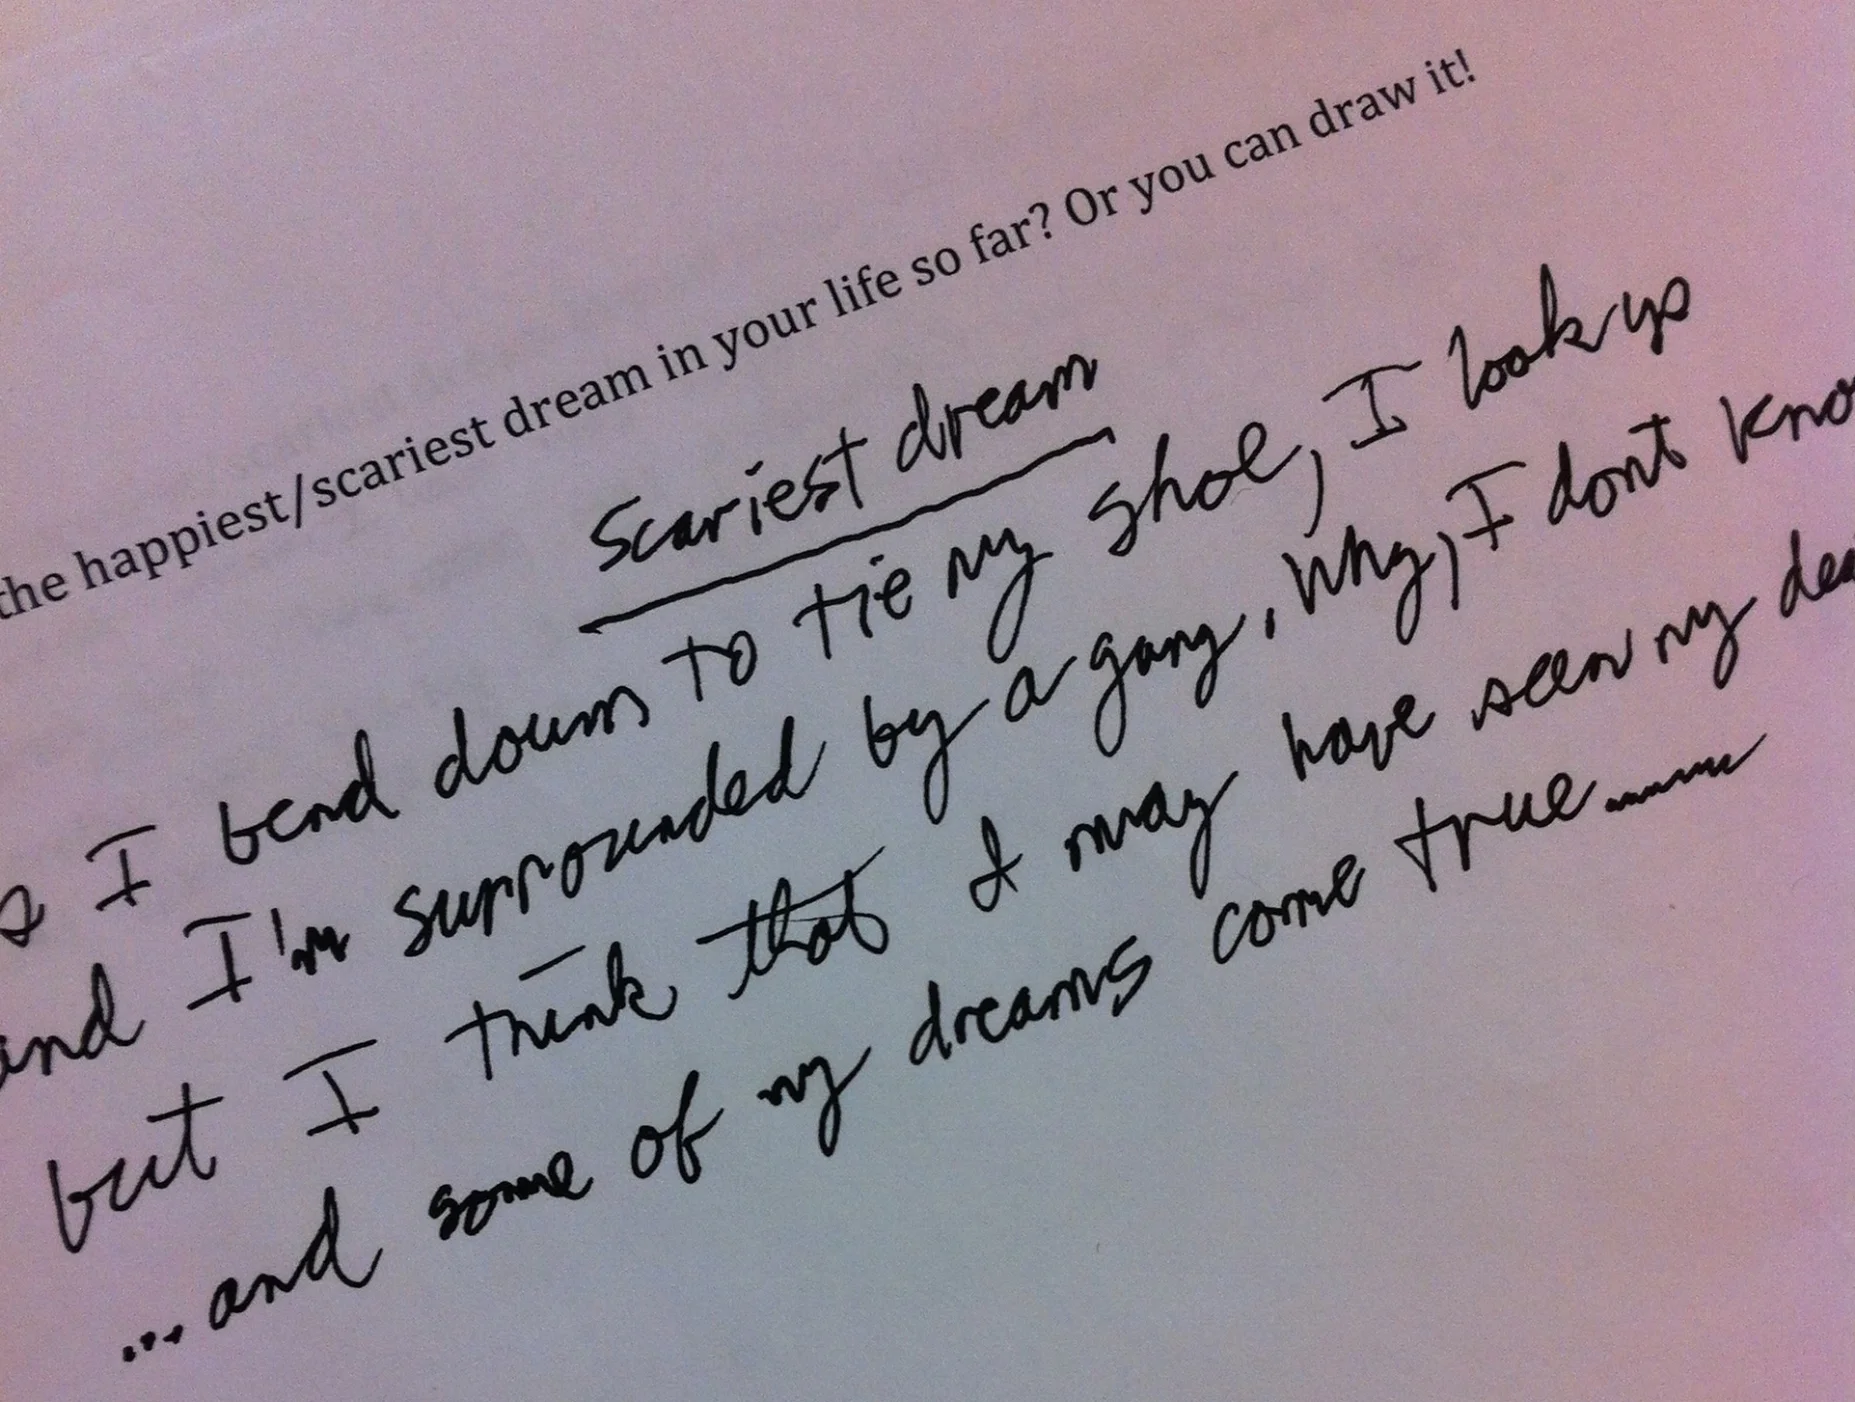 the happiest/scariest dream in your life so far? Or you can draw it!
Scariest dream
s I bend down to tie my shoe, I look up
and I'm surrounded by a gang, Why, I dont kno
but I think that I may have seen my dea
...and some of my dreams come true........